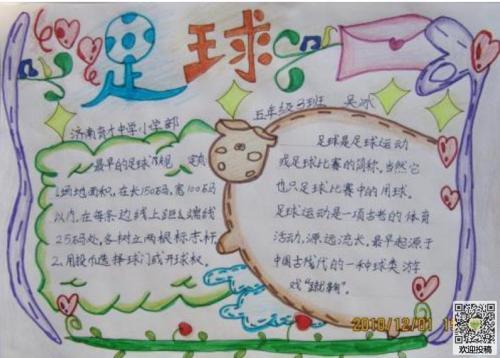 足球
五年级3班 吴冰
济南育才中学小学部
最早的足球规
1.场地面积,在长150码,宽100码
以内,在每条边线上距离端线
25码处,各树立两根标志杆
2.用投币选择球门或开球权。
足球是足球运动
或足球比赛的简称,当然它
也只足球比赛中的用球。
足球运动是一项古老的体育
活动,源远流长。最早起源于
中国古代的一种球类游
戏"蹴鞠"。
2010/12/01
欢迎投稿